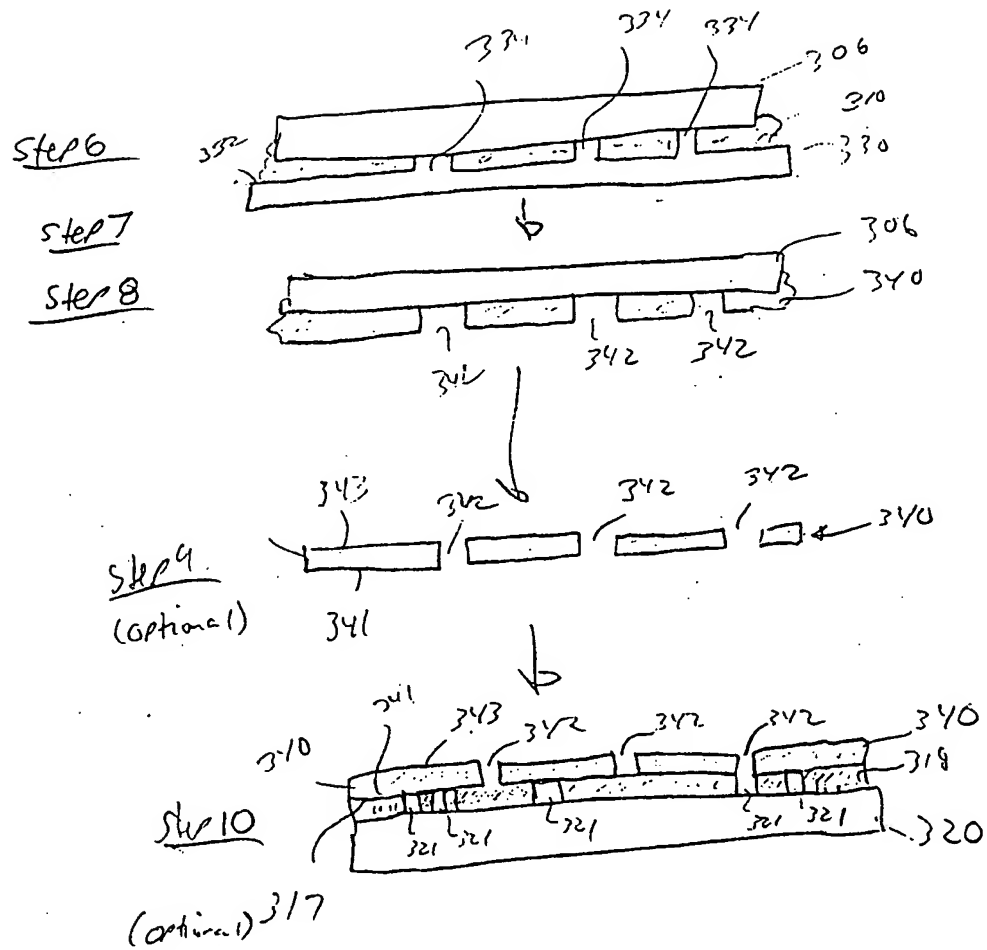 334 334 334
306
310
330
Step 6
332
Step 7
Step 8
306
340
342 342 342
343 342 342 342
340
Step 9
(optional)
341
341 343 342 342 342 340
340
318
Step 10
321 321 321 321 321
320
(optional) 317